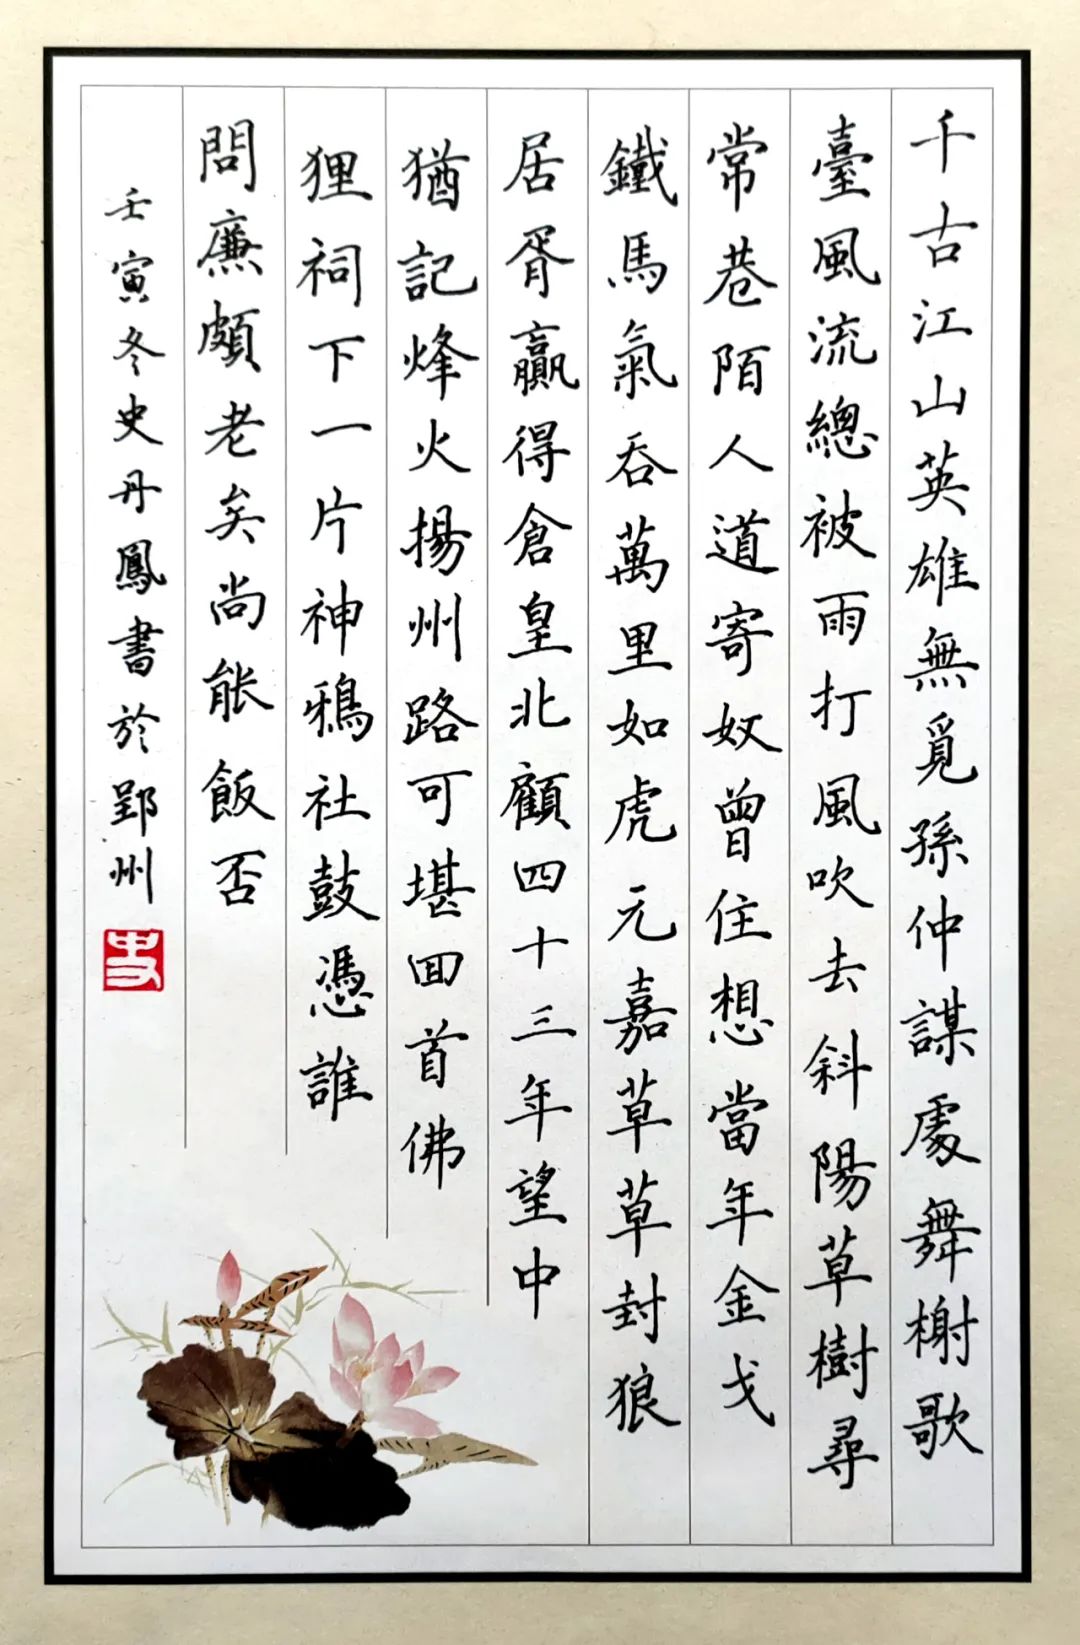 千古江山英雄無覓孫仲謀處舞榭歌
臺風流總被雨打風吹去斜陽草樹尋
常巷陌人道寄奴曾住想當年金戈
鐵馬氣吞萬里如虎元嘉草草封狼
居胥贏得倉皇北顧四十三年望中
猶記烽火揚州路可堪回首佛
狸祠下一片神鴉社鼓憑誰
問廉頗老矣尚能飯否
壬寅冬史丹鳳書於郢州
史